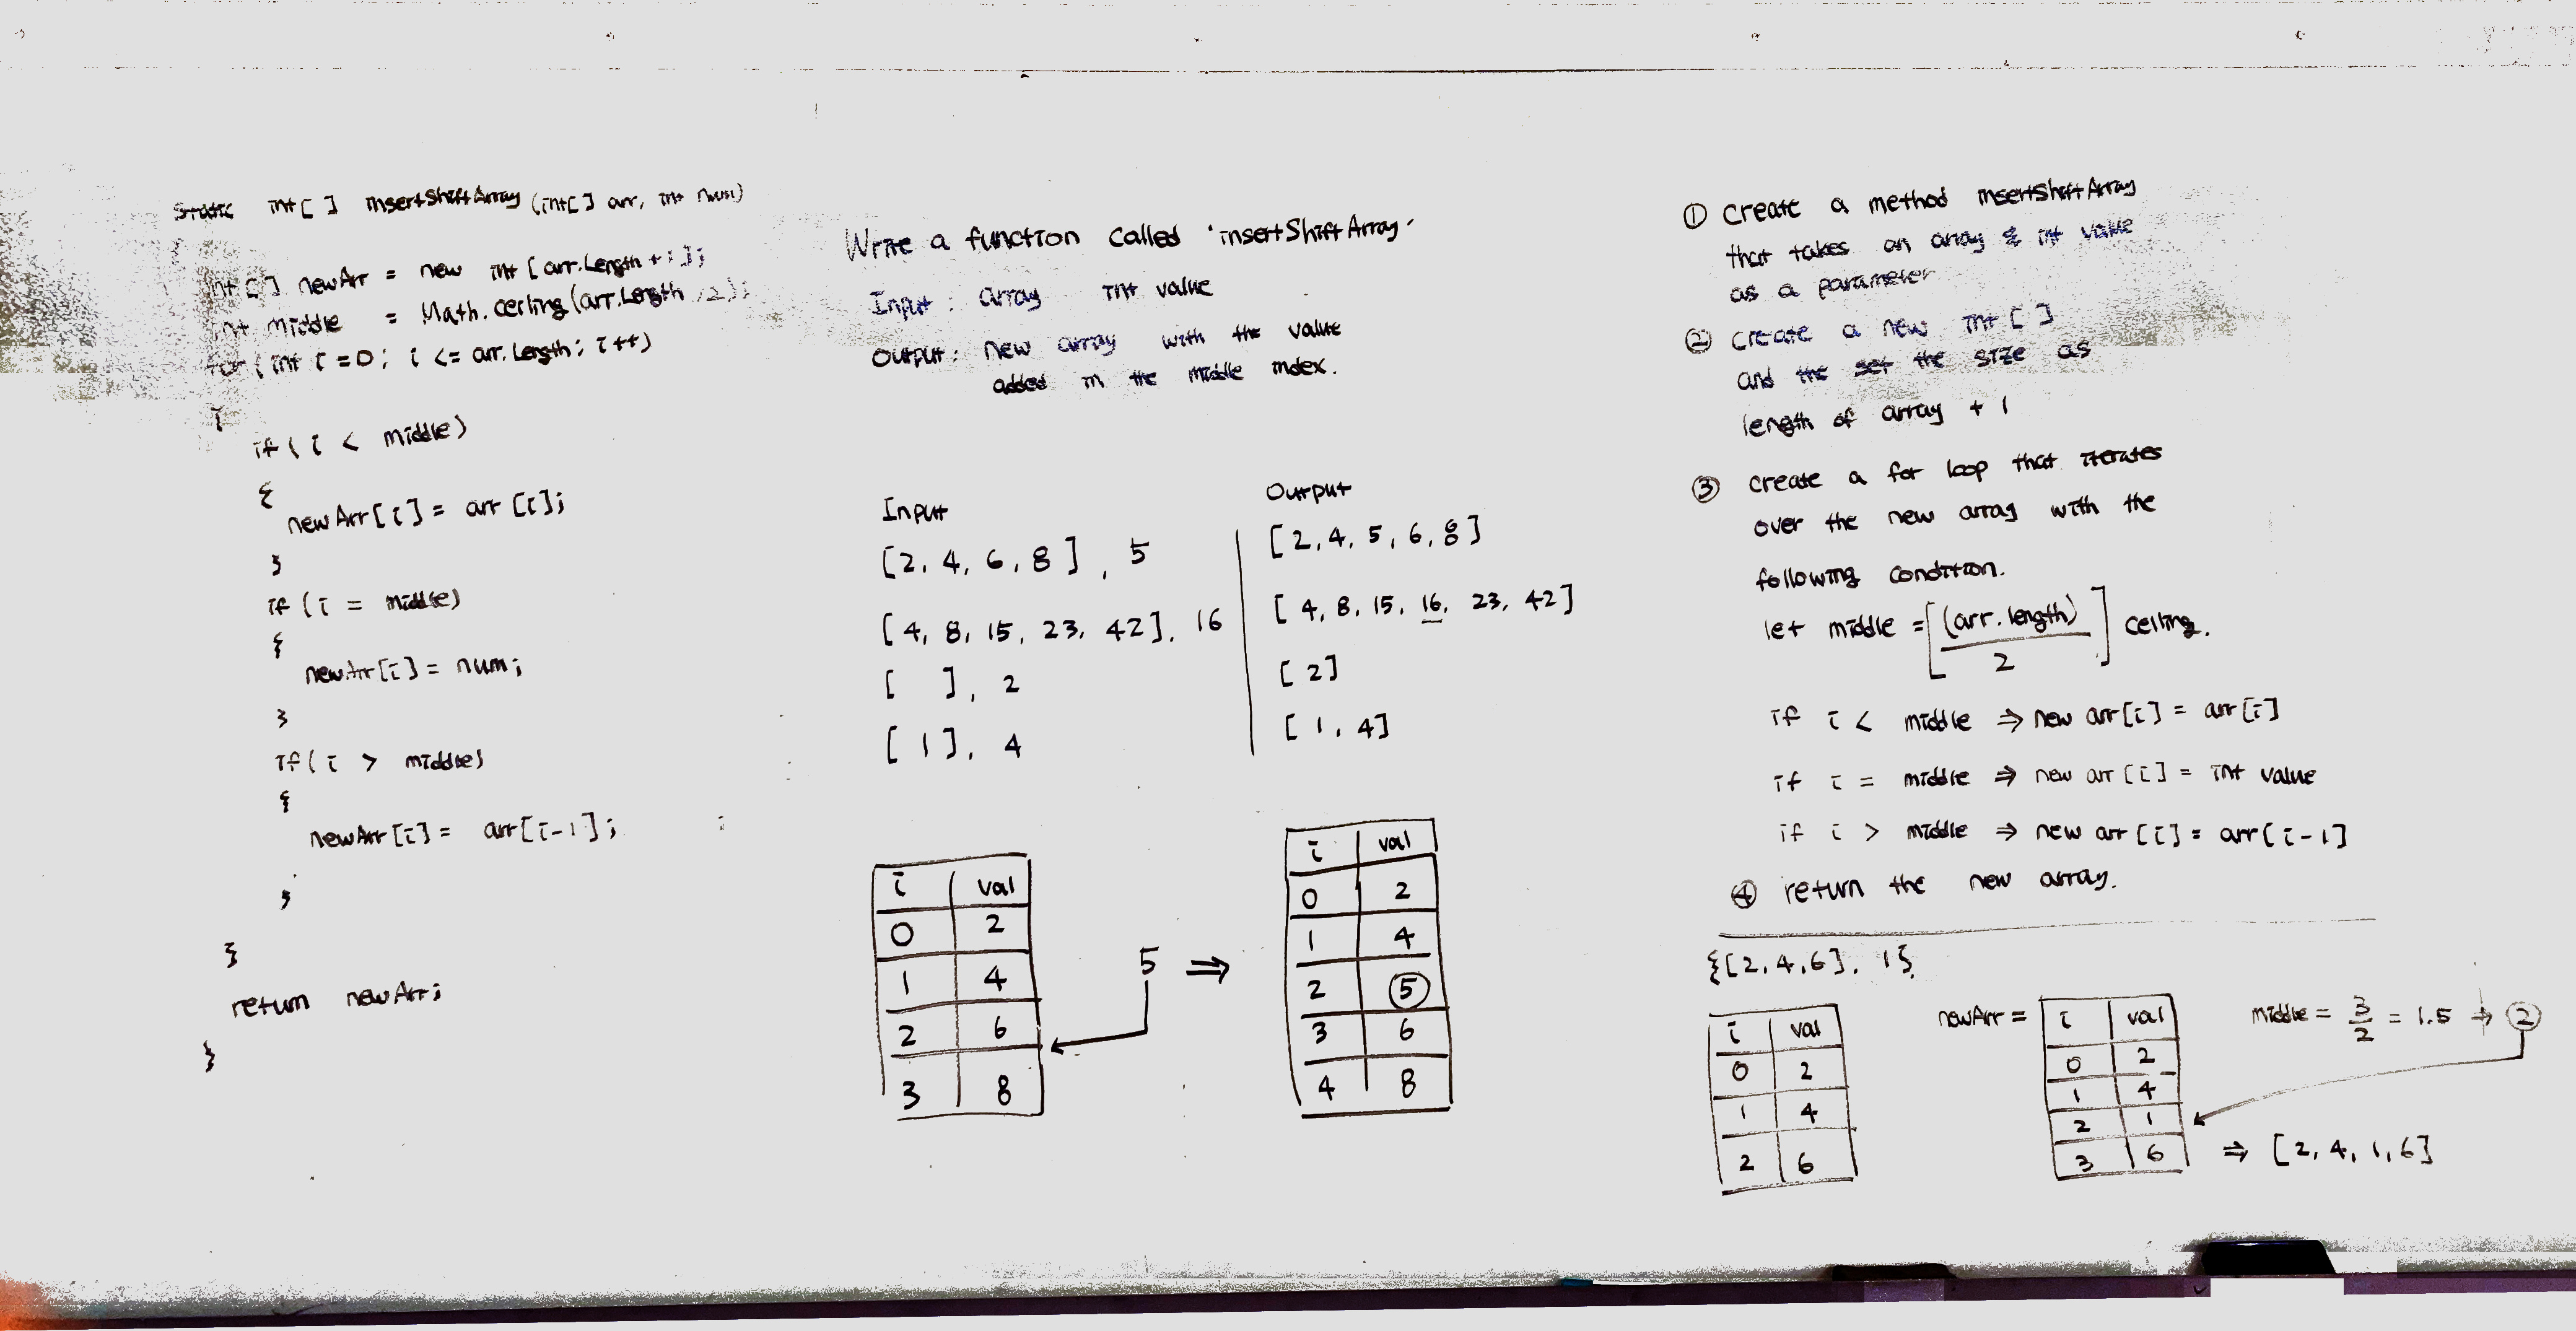 static int[ ] insertShiftArray (int[] arr, int num)
int[ ] newArr = new int[arr.Length + 1];
int middle = Math.ceiling(arr.Length /2);
for (int i = 0; i <= arr.Length; i++)
{
if (i < middle)
{
newArr[i] = arr[i];
}
if (i = middle)
{
newArr[i] = num;
}
if (i > middle)
{
newArr[i] = arr[i-1];
}
}
return newArr;
}
Write a function called 'insertShiftArray'
Input: array int value
Output: new array with the value
added in the middle index.
Input
[2, 4, 6, 8], 5
[4, 8, 15, 23, 42], 16
[ ], 2
[1], 4
Output
[2, 4, 5, 6, 8]
[4, 8, 15, 16, 23, 42]
[2]
[1, 4]
i val
0 2
1 4
2 6
3 8
5 ⇒
i val
0 2
1 4
2 5
3 6
4 8
① Create a method insertShiftArray
that takes an array & int value
as a parameter
② Create a new int[ ]
and the set the size as
length of array + 1
③ create a for loop that iterates
over the new array with the
following condition.
let middle = [(arr.length)
2
] ceiling.
if i < middle ⇒ new arr[i] = arr[i]
if i = middle ⇒ new arr[i] = int value
if i > middle ⇒ new arr[i] = arr[i-1]
④ return the new array.
{[2,4,6], 1}
i val
0 2
1 4
2 6
newArr =
i val
0 2
1 4
2 1
3 6
middle = 3/2 = 1.5 → ②
⇒ [2, 4, 1, 6]